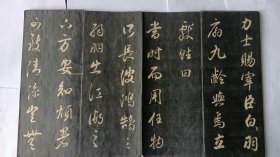 力士賜宰臣白羽
扇九齡與焉立
獻賦曰
當時而用任物
所長彼鴻鵠之
弱羽出江湖之
下方安知煩暑
可致清涼豈無